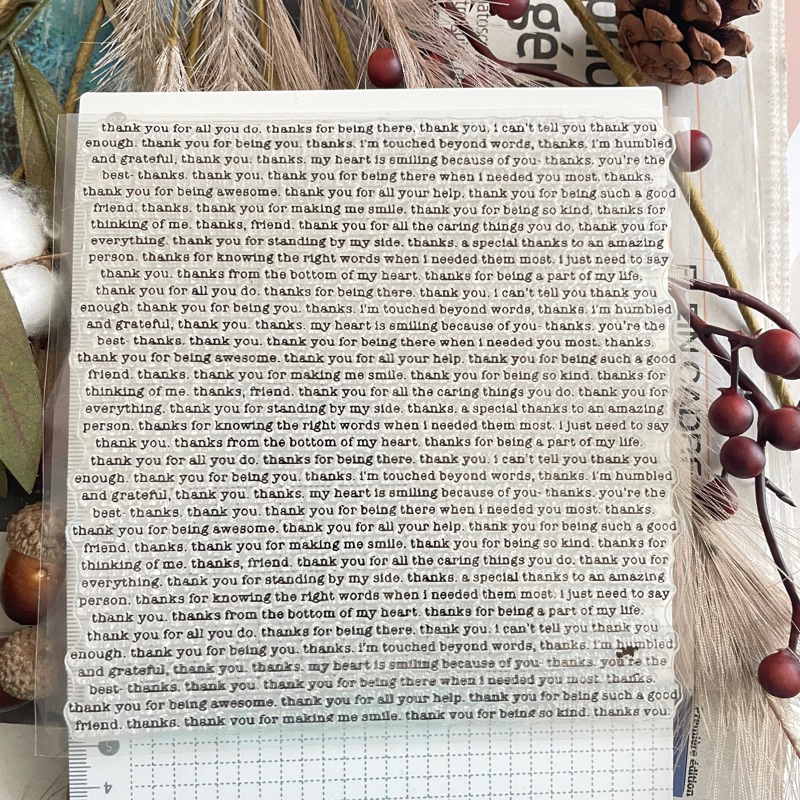 thank you for all you do. thanks for being there. thank you. i can't tell you thank you
enough. thank you for being you. thanks. i'm touched beyond words, thanks. i'm humbled
and grateful, thank you. thanks. my heart is smiling because of you- thanks. you're the
best- thanks. thank you for being there when i needed you most. thanks.
thank you for being awesome. thank you for all your help. thank you for being such a good
friend. thanks. thank you for making me smile. thank you for being so kind. thanks for
thinking of me. thanks, friend. thank you for all the caring things you do. thank you for
everything. thank you for standing by my side. thanks. a special thanks to an amazing
person. thanks for knowing the right words when i needed them most. i just need to say
thank you. thanks from the bottom of my heart. thanks for being a part of my life.
thank you for all you do. thanks for being there. thank you. i can't tell you thank you
enough. thank you for being you. thanks. i'm touched beyond words, thanks. i'm humbled
and grateful, thank you. thanks. my heart is smiling because of you- thanks. you're the
best- thanks. thank you for being there when i needed you most. thanks.
thank you for being awesome. thank you for all your help. thank you for being such a good
friend. thanks. thank you for making me smile. thank you for being so kind. thanks for
thinking of me. thanks, friend. thank you for all the caring things you do. thank you for
everything. thank you for standing by my side. thanks. a special thanks to an amazing
person. thanks for knowing the right words when i needed them most. i just need to say
thank you. thanks from the bottom of my heart. thanks for being a part of my life.
thank you for all you do. thanks for being there. thank you. i can't tell you thank you
enough. thank you for being you. thanks. i'm touched beyond words, thanks. i'm humbled
and grateful, thank you. thanks. my heart is smiling because of you- thanks. you're the
best- thanks. thank you for being there when i needed you most. thanks.
thank you for being awesome. thank you for all your help. thank you for being such a good
friend. thanks. thank you for making me smile. thank you for being so kind. thanks for
thinking of me. thanks, friend. thank you for all the caring things you do. thank you for
everything. thank you for standing by my side. thanks. a special thanks to an amazing
person. thanks for knowing the right words when i needed them most. i just need to say
thank you. thanks from the bottom of my heart. thanks for being a part of my life.
thank you for all you do. thanks for being there. thank you. i can't tell you thank you
enough. thank you for being you. thanks. i'm touched beyond words, thanks. i'm humbled
and grateful, thank you. thanks. my heart is smiling because of you- thanks. you're the
best- thanks. thank you for being there when i needed you most. thanks.
thank you for being awesome. thank you for all your help. thank you for being such a good
friend. thanks. thank you for making me smile. thank you for being so kind. thanks you.
5
4
édition